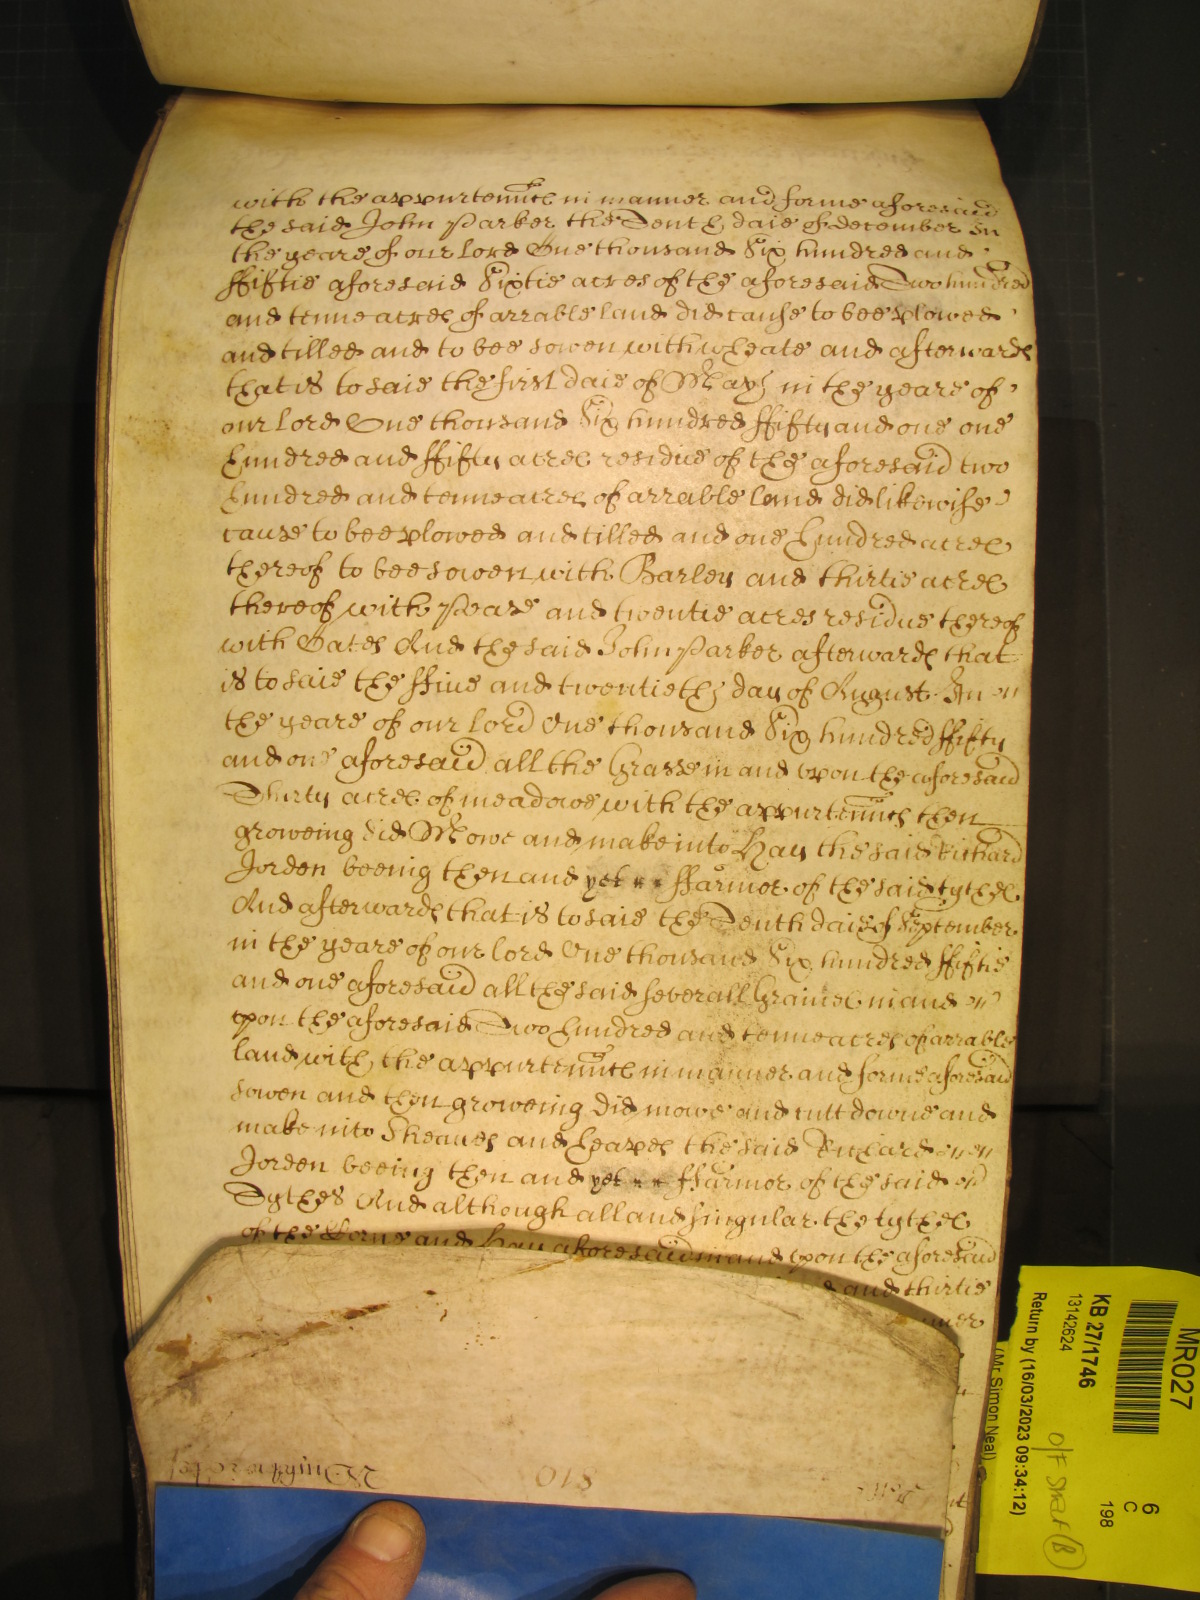 with the appurtenn̄ces in manner and forme aforesaid
the said John Parker the Tenth daie of december in
the yeare of our lord One thousand Six hundred and
ffiftie aforesaid Sixtie acres of the aforesaid Two hundred
and tenne acres of arrable land did cause to bee plowed
and tilled and to bee sowen with wheate and afterwardes
that is to saie the first daie of May in the yeare of
our lord One thousand Six hundred ffifty and one one
hundred and ffifty acres residue of the aforesaid two
hundred and tenne acres of arrable land did likewise
cause to bee plowed and tilled and one hundred acres
thereof to bee sowen with Barley and thirtie acres
thereof with Pease and twentie acres residue thereof
with Oates And the said John Parker afterwardes that
is to saie the ffive and twentieth day of August In
the yeare of our lord One thousand Six hundred ffifty
and one aforesaid all the Grasse in and upon the aforesaid
Thirty acres of meadowe with the appurtenn̄ces then
groweing did Mowe and make into Hay the said Richard
Jorden beeing then and yet ffarmor of the said tythes
And afterwardes that is to saie the Tenth daie of September
in the yeare of our lord One thousand Six hundred ffiftie
and one aforesaid all the said severall Graines in and
upon the aforesaid Two hundred and tenne acres of arrable
land with the appurtenn̄ces in manner and forme aforesaid
sowen and then groweing did mowe and cutt downe and
make into Sheaves and heapes the said Richard
Jorden beeing then and yet ffarmor of the said
Tythes And although all and singular the tythes
of the Corne and Hay aforesaid in and upon the aforesaid
and thirtie
810
MR027
KB 27/1746
13142624
Return by (16/03/2023 09:34:12)
(Mr Simon Neal)
6
C
198
O/F
(B)